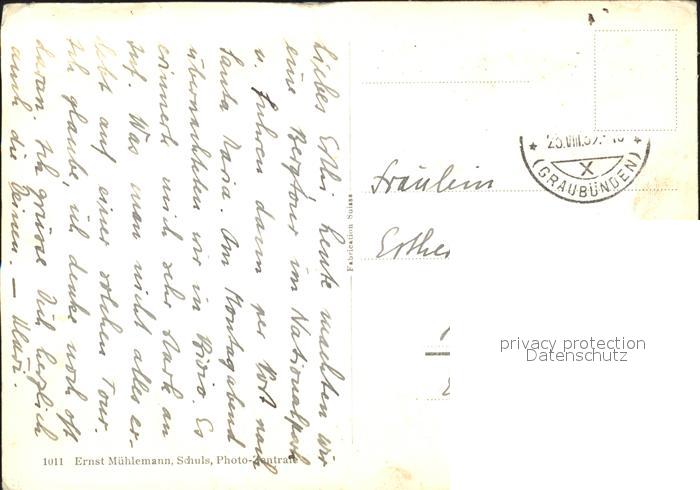 Liebes Esthi, heute machten wir
eine Bergtour im Nationalpark
u. fuhren dann per Post nach
Santa Maria. Am Montagabend
übernachteten wir in Bivio. Es
erinnert mich sehr stark an
Juf. Was man nicht alles er-
lebt auf einer solchen Tour.
Ich glaube, ich denke noch oft
daran. Ich grüsse Dich herzlich
auch die Deinen. –
Fabrication Suisse
1011 Ernst Mühlemann, Schuls, Photo-Zentrale
(GRAUBÜNDEN)
X
Fräulein
Esther
privacy protection
Datenschutz